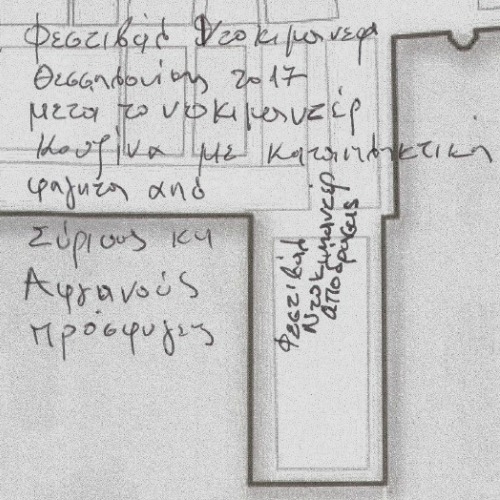 Φεστιβάλ Ντοκιμαντέρ
Θεσσαλονίκης 2017
μετά το ντοκιμαντέρ
κουζίνα με καταπληκτικά
φαγητά από
Σύριους και
Αφγανούς
πρόσφυγες
Φεστιβάλ
Ντοκιμαντέρ
αποδράσεις